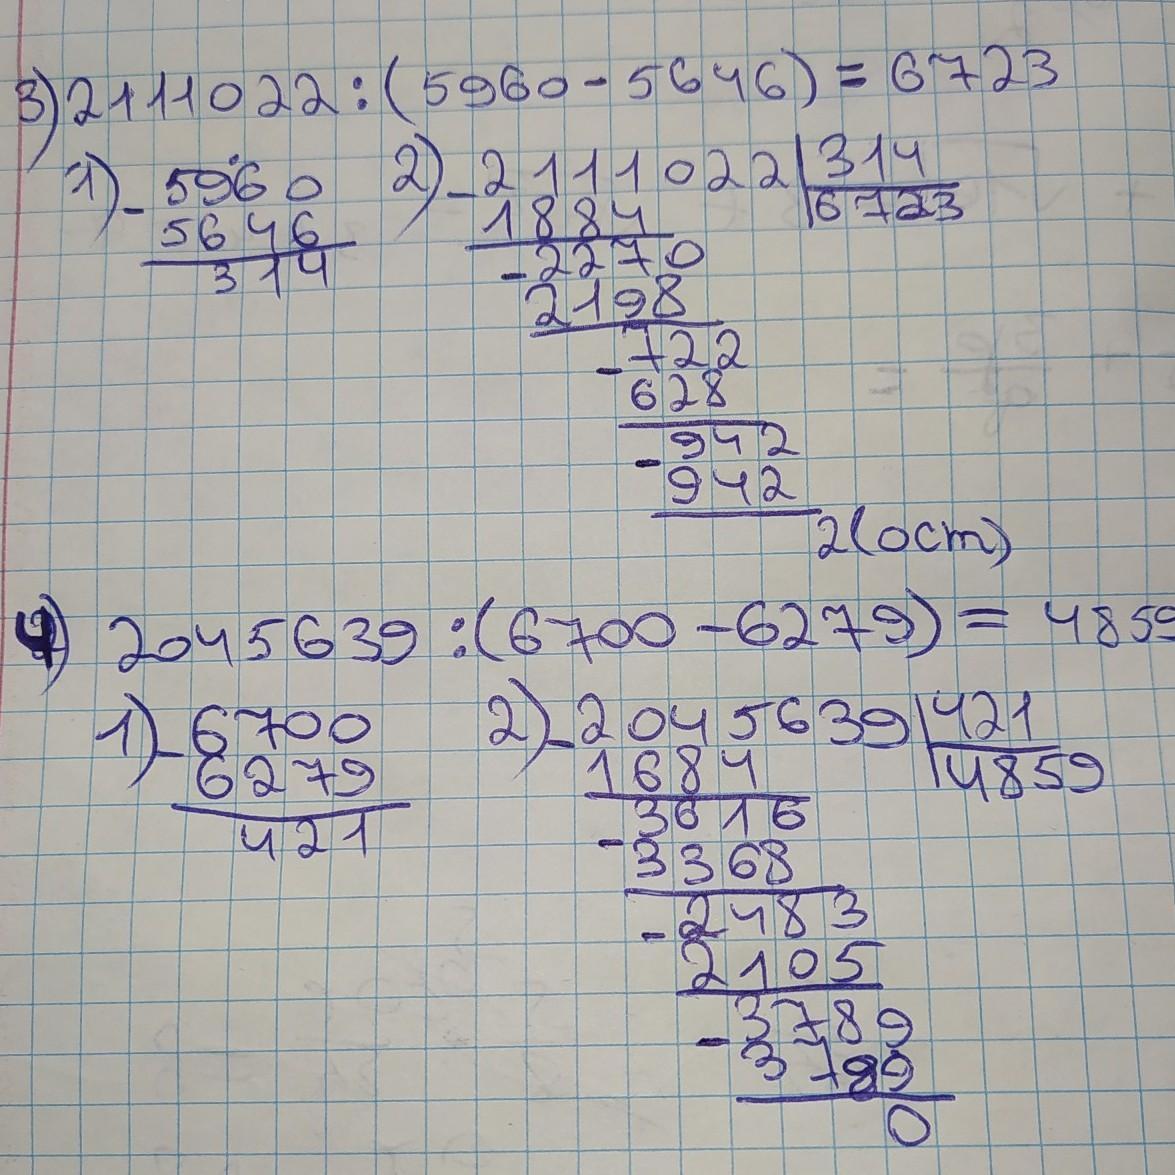 3) 2111022 : (5960 - 5646) = 6723
1) - 5960
5646
314
2) - 2111022 | 314
1884 | 6723
- 2270
2198
- 722
628
- 942
942
2 (ост)
4) 2045639 : (6700 - 6279) = 4859
1) - 6700
6279
421
2) - 2045639 | 421
1684 | 4859
- 3616
3368
- 2483
2105
- 3789
3789
0